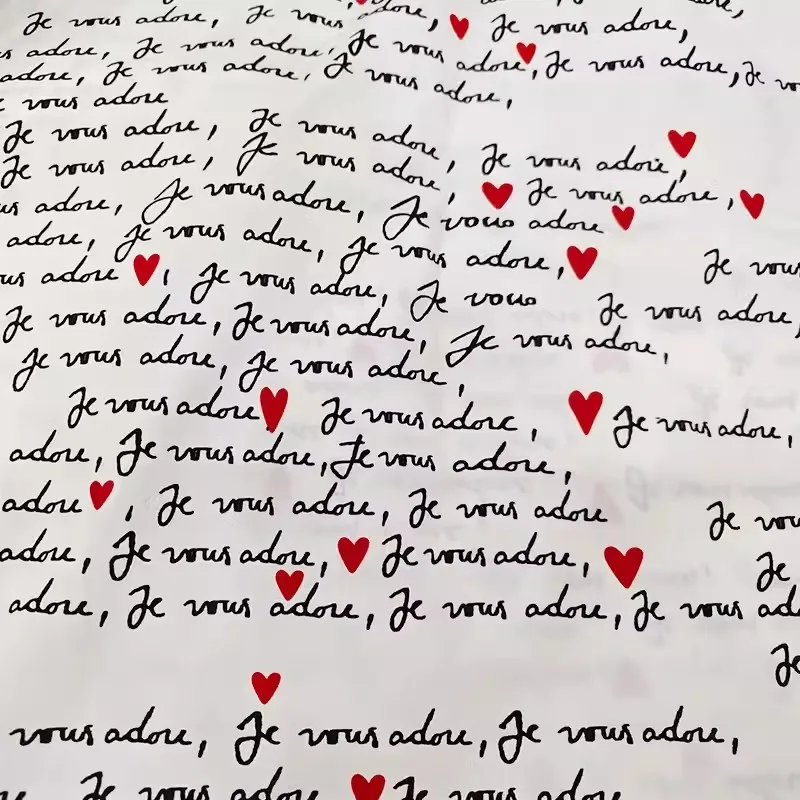 Je vous adore, Je vous adore, Je vous adore,
adore, Je vous adore, Je vous adore, Je vous adore, Je
adore, Je vous adore, Je vous adore,
vous adore
Je vous adore, Je vous adore, Je vous adore,
Je vous adore, Je vous adore, Je vous adore,
adore, Je vous adore, Je vous adore
adore, Je vous adore, Je vous adore, Je vous
adore, Je vous adore, Je vous Je vous adore,
Je vous adore, Je vous adore, Je vous adore,
Je vous adore, Je vous adore,
Je vous adore Je vous adore, Je vous adore,
adore, Je vous adore, Je vous adore,
adore, Je vous adore, Je vous adore Je
adore, Je vous adore, Je vous adore, Je
adore, Je vous adore, Je vous adore, Je vous
Je
vous adore, Je vous adore, Je vous adore,
Je vous adore Je vous adore